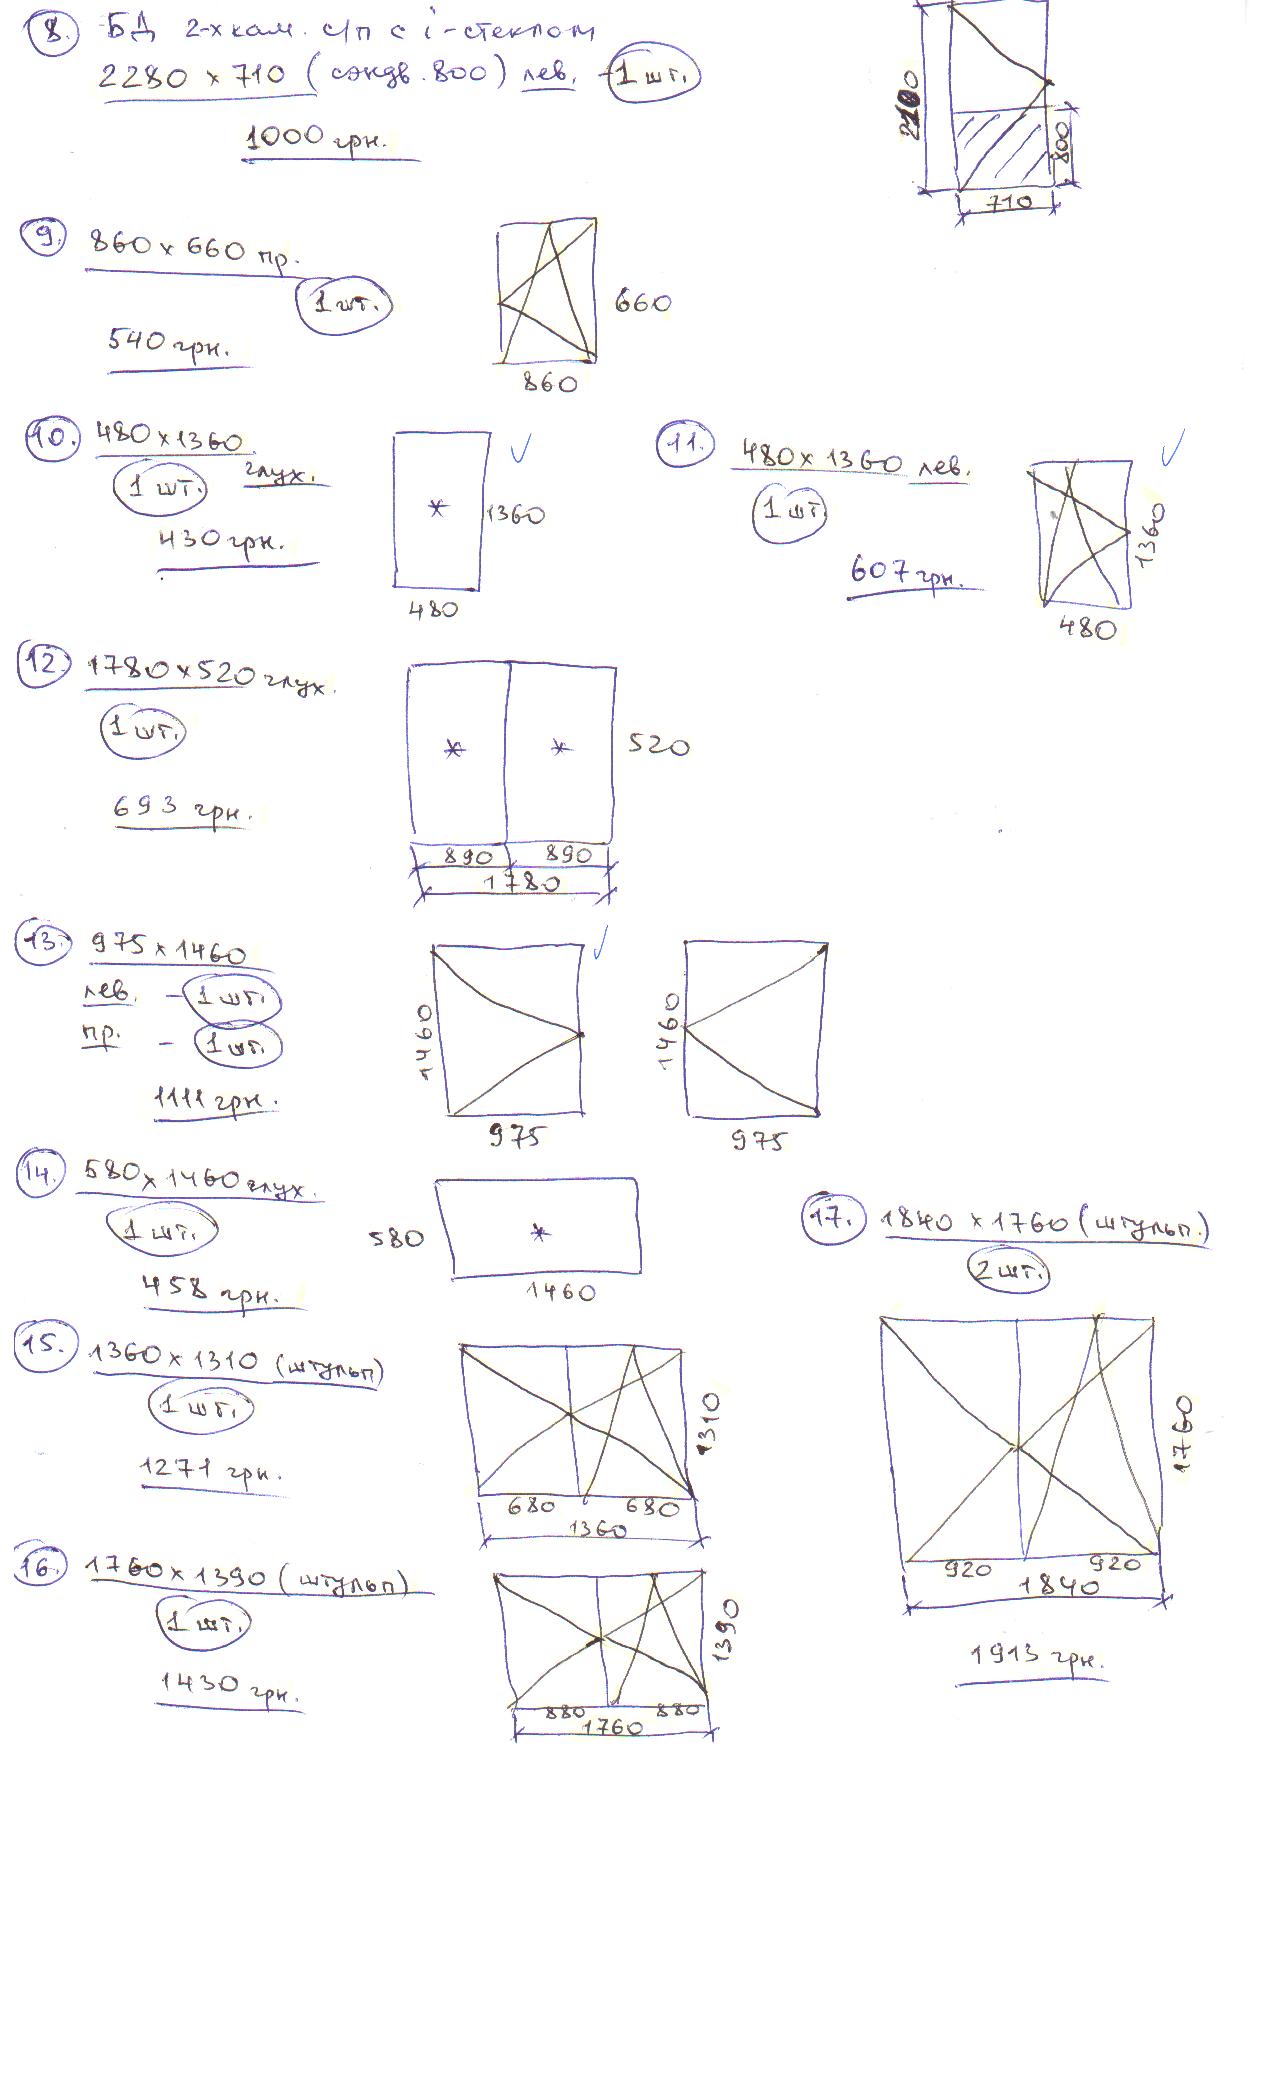 8. БД 2-х кам. с/п с i-стеклом
2280 х 710 (сэндв. 800) лев. - 1 шт.
1000 грн.
800
710
9. 860 х 660 пр.
1 шт.
540 грн.
660
860
10. 480 х 1360
1 шт. глух.
430 грн.
1360
480
11. 480 х 1360 лев.
1 шт
607 грн.
1360
480
12. 1780 х 520 глух.
1 шт.
693 грн.
520
890 890
1780
13. 975 х 1460
лев. - 1 шт.
пр. - 1 шт.
1111 грн.
1460
975
1460
975
14. 580 х 1460 глух.
1 шт.
458 грн.
580
1460
15. 1360 х 1310 (штульп)
1 шт.
1271 грн.
1310
680 680
1360
16. 1760 х 1390 (штульп)
1 шт.
1430 грн.
1390
880 880
1760
17. 1840 х 1760 (штульп.)
2 шт.
1760
920 920
1840
1913 грн.